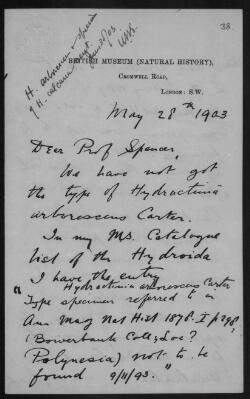 38
H. arborescens specimen
& H. calcarea sent
June 26/03
WBS.
BRITISH MUSEUM (NATURAL HISTORY),
CROMWELL ROAD,
LONDON: S.W.
May 28th 1903
Dear Prof Spencer,
We have not got
the type of Hydractinia
arborescens Carter.
In my MS. Catalogue
list of the Hydroida
I have the entry
"Hydractinia arborescens Carter
Type specimen referred to in
Ann Mag Nat Hist 1878. I p298,
(Bowerbank Coll. Loc?
Polynesia) not to be
found 9/11/93."